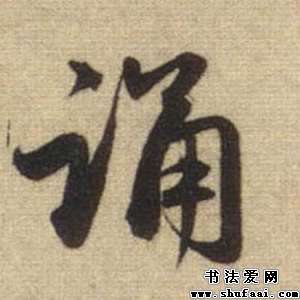 誦
书法爱网
www.shufaai.com